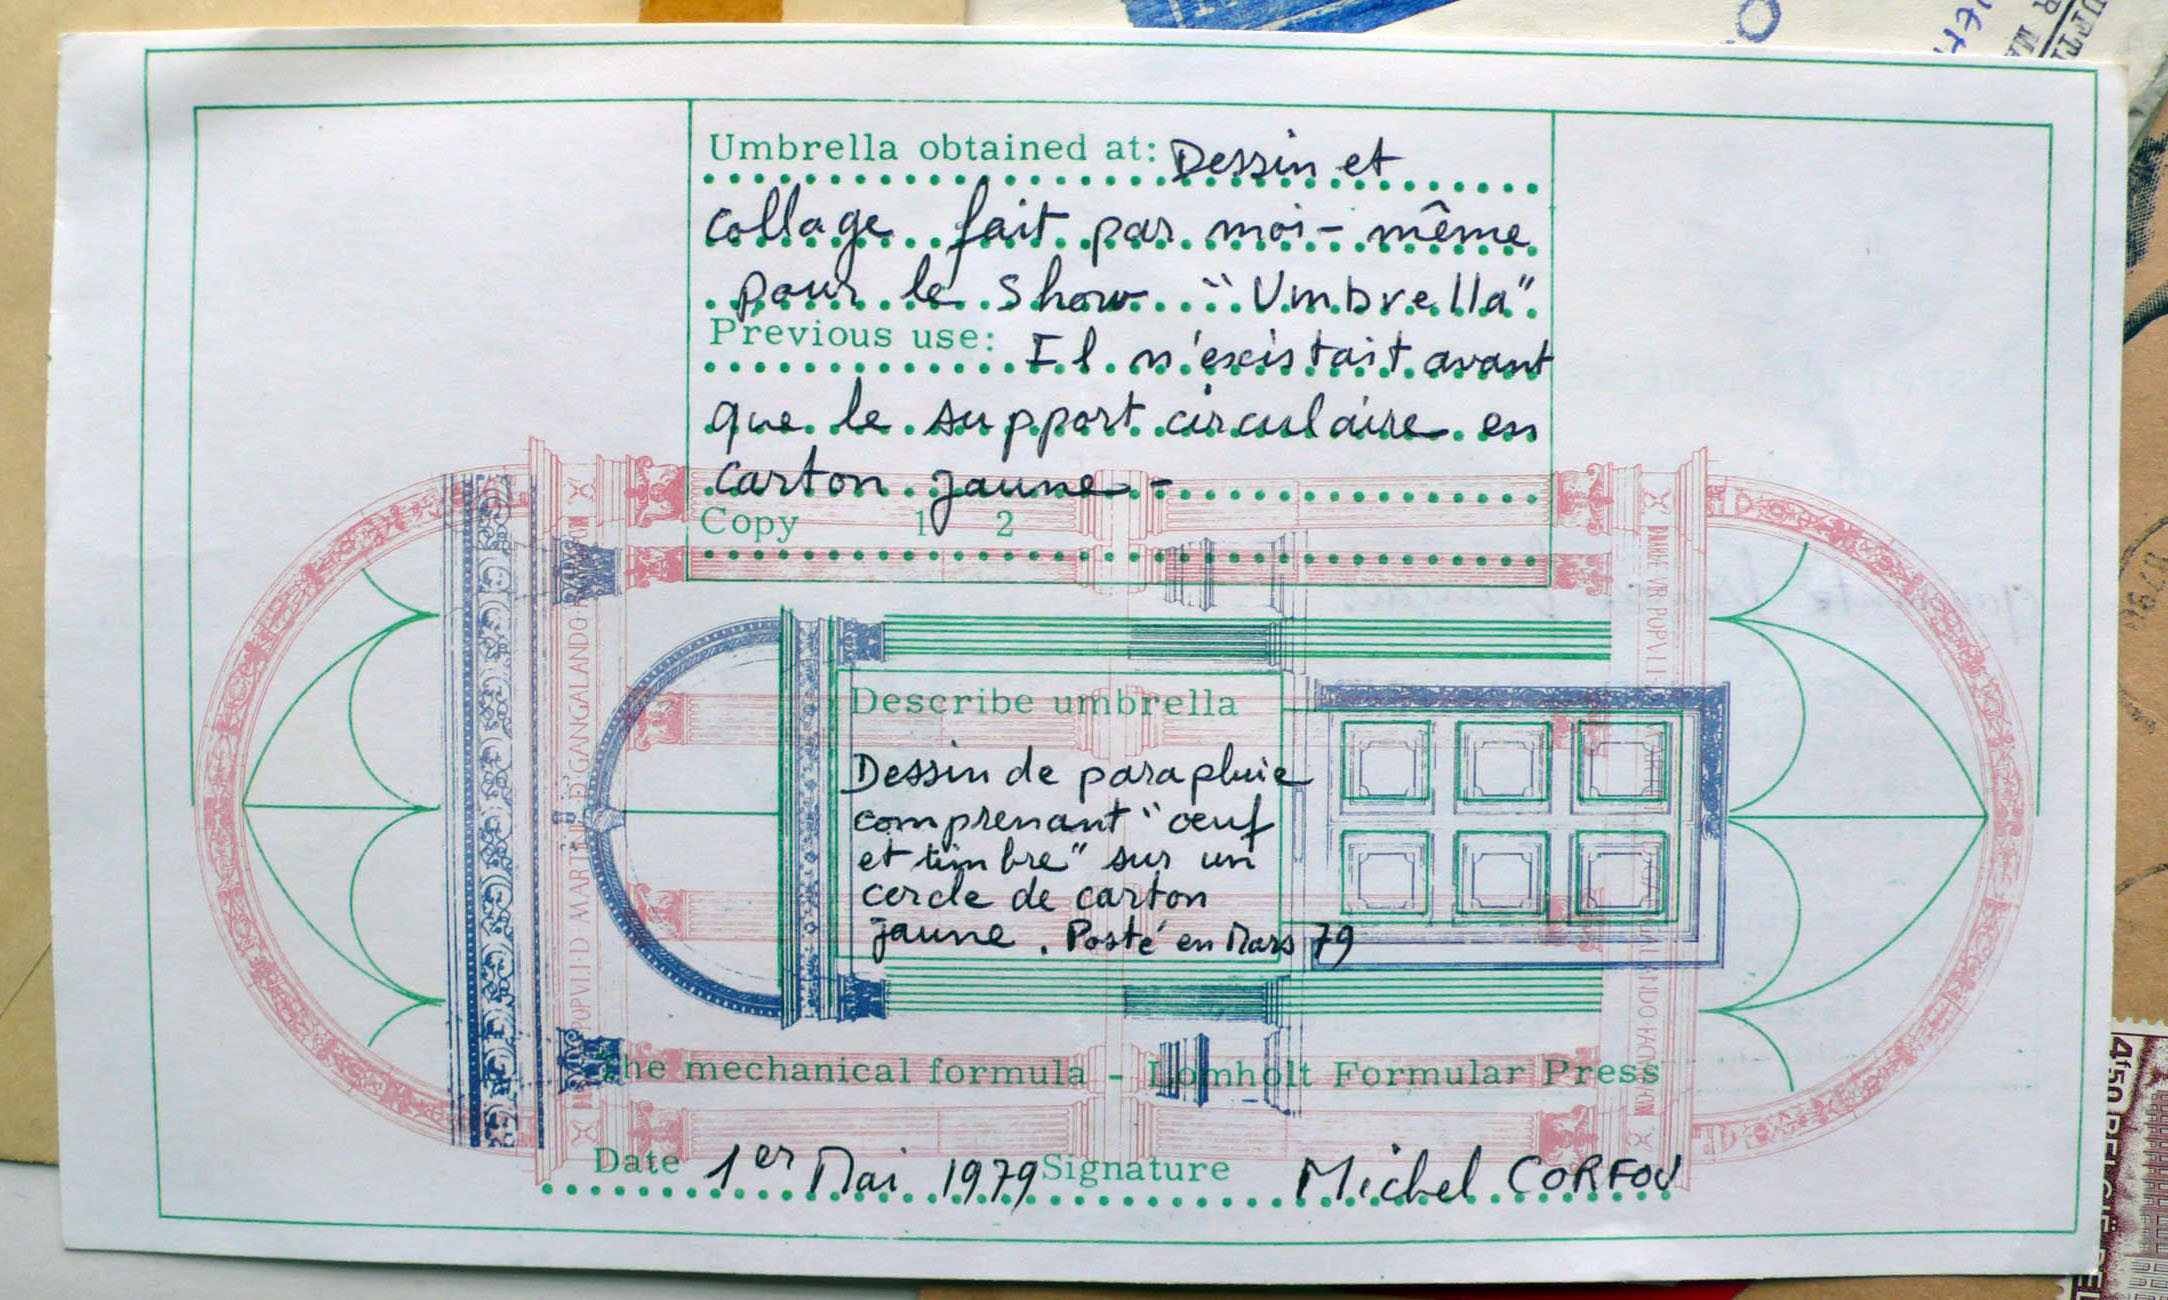 Umbrella obtained at: Dessin et
collage fait par moi-même
pour le show "Umbrella"
Previous use: Il n'existait avant
que le support circulaire en
carton jaune -
Copy 1 2
Describe umbrella
Dessin de parapluie
comprenant "œuf
et timbre" sur un
cercle de carton
jaune. Posté en Mars 79
The mechanical formula - Lomholt Formular Press
Date 1er Mai 1979 Signature Michel CORFOU